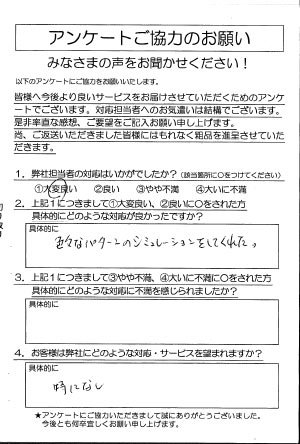 アンケートご協力のお願い
みなさまの声をお聞かせください！
以下のアンケートにご協力をお願いいたします。
皆様へ今後より良いサービスをお届けさせていただくためのアンケ
ートでございます。対応担当者へのお気遣いは結構でございます。
是非率直な感想、ご要望をご記入お願い申し上げます。
尚、ご返送いただきました皆様にはもれなく粗品を進呈させていた
だきます。
1．弊社担当者の対応はいかがでしたか？（該当箇所に○をつけてください）
①大変良い　②良い　③やや不満　④大いに不満
2．上記1につきまして①大変良い、②良いに○をされた方
具体的にどのような対応が良かったですか？
具体的に
色々なパターンのシミュレーションをしてくれた。
3．上記1につきまして③やや不満、④大いに不満に○をされた方
具体的にどのような対応に不満を感じられましたか？
具体的に
4．お客様は弊社にどのような対応・サービスを望まれますか？
具体的に
特になし
★アンケートにご協力いただきまして誠にありがとうございました。
今後とも何卒宜しくお願い申し上げます。